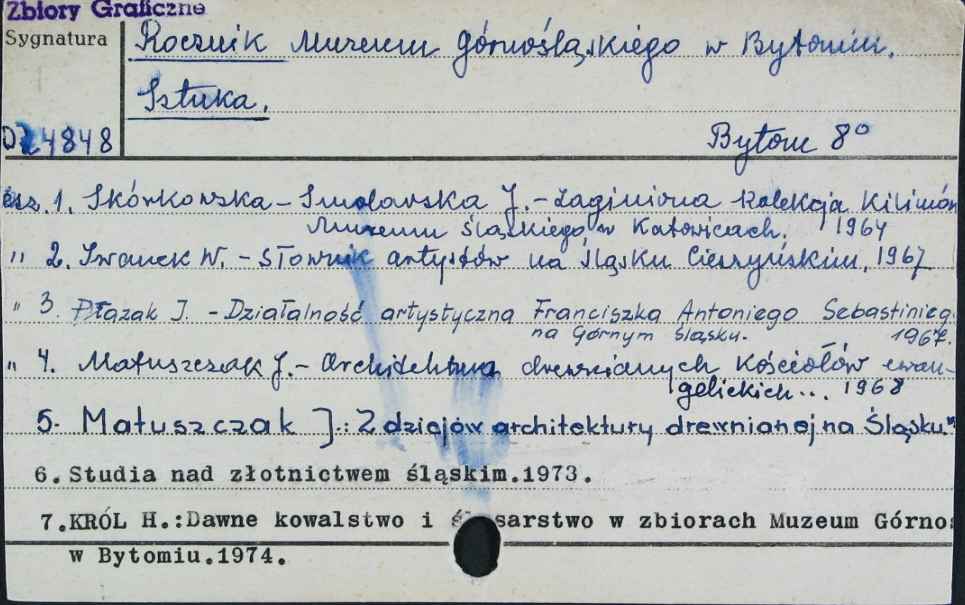 Zbiory Graficzne
Sygnatura
Rocznik Muzeum Górnośląskiego w Bytomiu.
Sztuka.
4848
Bytom 8°
z. 1. Skórkowska-Smolarska J. - Zaginiona kolekcja Kilimów
Muzeum Śląskiego w Katowicach. 1964
" 2. Iwanek W. - Słownik artystów na Śląsku Cieszyńskim. 1967
" 3. Płazak J. - Działalność artystyczna Franciszka Antoniego Sebastinieg.
na Górnym Śląsku. 1967.
" 4. Matuszczak J. - Architektura drewnianych kościołów ewan-
gelickich... 1968
5. Matuszczak J.: Z dziejów architektury drewnianej na Śląsku.
6. Studia nad złotnictwem śląskim.1973.
7. KRÓL H.:Dawne kowalstwo i ś sarstwo w zbiorach Muzeum Górnoś
w Bytomiu.1974.